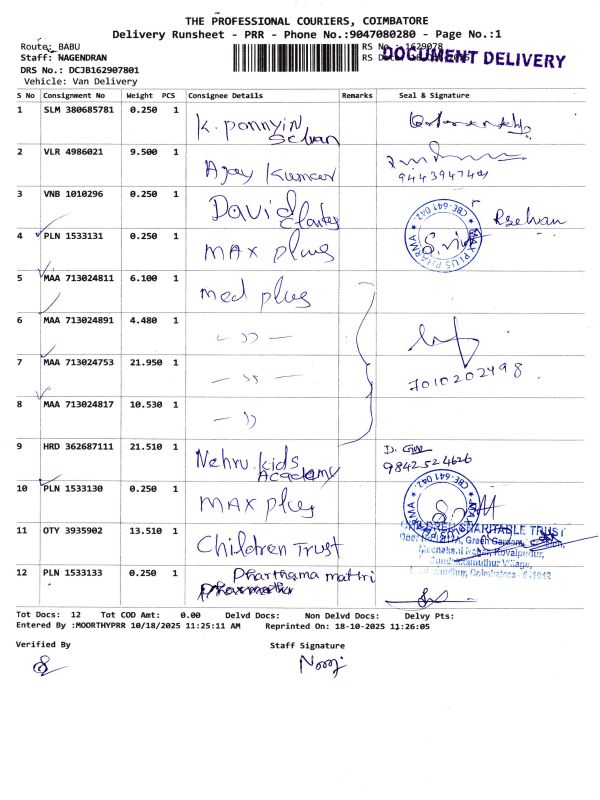 THE PROFESSIONAL COURIERS, COIMBATORE
Delivery Runsheet - PRR - Phone No.:9047080280 - Page No.:1
Route: BABU
RS No : 1629078
Staff: NAGENDRAN
RS Da
DOCUMENT DELIVERY
DRS No.: DCJB162907801
Vehicle: Van Delivery
S No Consignment No Weight PCS Consignee Details Remarks Seal & Signature
1 SLM 380685781 0.250 1 K. Ponnyin Selvan
2 VLR 4986021 9.500 1 Ajay Kumar
3 VNB 1010296 0.250 1 David
4 PLN 1533131 0.250 1 MAX plus
MAX PLUS PHARMA ★ CBE-641 042. ★
5 MAA 713024811 6.100 1 Med plus
6 MAA 713024891 4.480 1 - 〃 -
7 MAA 713024753 21.950 1 - 〃 - 7010202498
8 MAA 713024817 10.530 1 - 〃
9 HRD 362687111 21.510 1 Nehru kids Academy 9842524626
10 PLN 1533130 0.250 1 MAX plus
11 OTY 3935902 13.510 1 Children Trust
CHILDREN CHARITABLE TRUST
12 PLN 1533133 0.250 1
Tot Docs: 12 Tot COD Amt: 0.00 Delvd Docs: Non Delvd Docs: Delvy Pts:
Entered By :MOORTHYPRR 10/18/2025 11:25:11 AM Reprinted On: 18-10-2025 11:26:05
Verified By Staff Signature